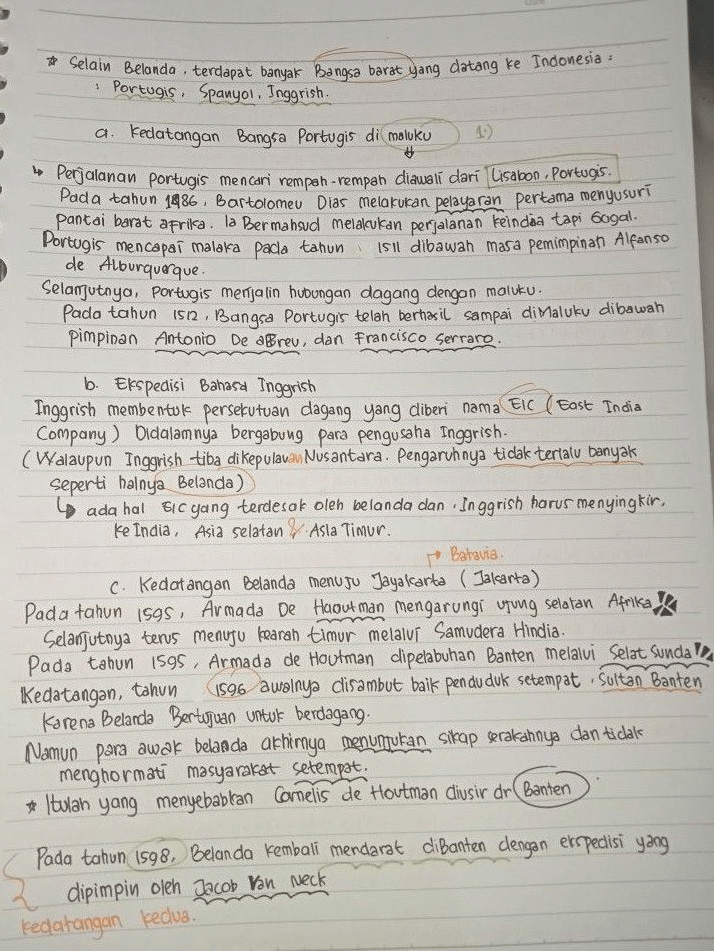 * Selain Belanda, terdapat banyak Bangsa barat yang datang ke Indonesia :
: Portugis, Spanyol, Inggrish.
a. Kedatangan Bangsa Portugis di maluku 1.)
↳ Perjalanan portugis mencari rempah-rempah diawali dari Lisabon, Portugis.
Pada tahun 1486, Bartolomeu Dias melakukan pelayaran pertama menyusuri
pantai barat afrika. Ia Bermahsud melakukan perjalanan keindia tapi Gagal.
Portugis mencapai malaka pada tahun : 1511 dibawah masa pemimpinan Alfonso
de Alburquerque.
Selanjutnya, portugis menjalin hubungan dagang dengan maluku.
Pada tahun 1512, Bangsa Portugis telah berhasil sampai diMaluku dibawah
pimpinan Antonio De aBreu, dan Francisco serraro.
b. Ekspedisi Bahasa Inggrish
Inggrish membentuk persekutuan dagang yang diberi nama EIC (East India
Company) Didalamnya bergabung para pengusaha Inggrish.
(Walaupun Inggrish tiba dikepulauan Nusantara. Pengaruhnya tidak terlalu banyak
seperti halnya Belanda)
↳ ada hal EIC yang terdesak oleh belanda dan, Inggrish harus menyingkir,
ke India, Asia selatan & Asia Timur.
→ Batavia.
c. Kedatangan Belanda menuju Jayakarta (Jakarta)
Pada tahun 1595, Armada De Haoutman mengarungi ujung selatan Afrika
Selanjutnya terus menuju kearah timur melalui Samudera Hindia.
Pada tahun 1595, Armada de Houtman dipelabuhan Banten melalui Selat Sunda
Kedatangan, tahun 1596 awalnya disambut baik penduduk setempat, Sultan Banten
Karena Belanda Bertujuan untuk berdagang.
Namun para awak belanda akhirnya menunjukan sikap serakahnya dan tidak
menghormati masyarakat setempat.
* Itulah yang menyebabkan Cornelis de Houtman diusir dr Banten
Pada tahun 1598, Belanda kembali mendarat diBanten dengan ekspedisi yang
dipimpin oleh Jacob Van Neck
kedatangan kedua.